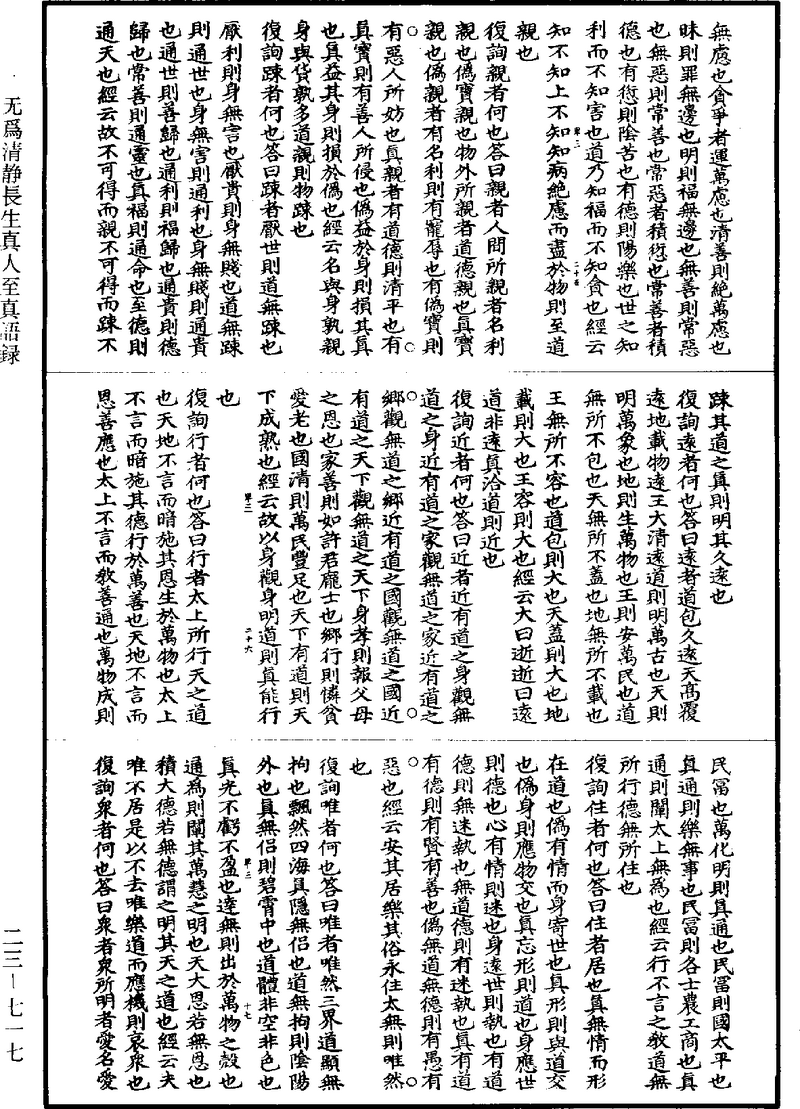 無慮也貪爭者運萬慮也清善則絶萬慮也
昧則罪無邊也明則福無邊也無善則常惡
也無惡則常善也常惡者積愆也常善者積
德也有愆則陰苦也有德則陽樂也世之知
利而不知害也道乃知福而不知貪也經云
知不知上不知知病絶慮而盡於物則至道
親也
復詢親者何也答曰親者人間所親者名利
親也僞寶親也物外所親者道德親也真寶
親也僞親者有名利則有寵辱也有僞寶則
有惡人所妨也真親者有道德則清平也有
真寶則有善人所侵也僞益於身則損其真
也真益其身則損於僞也經云名與身孰親
身與貨孰多道親則物踈也
復詢踈者何也答曰踈者厭世則道無踈也
厭利則身無害也厭貴則身無賤也道無踈
則通世也身無害則通利也身無賤則通貴
也通世則善歸也通利則福歸也通貴則德
歸也常善則通靈也真福則通命也至德則
通天也經云故不可得而親不可得而踈不
踈其道之真則明其久遠也
復詢遠者何也答曰遠者道包久遠天髙覆
遠地載物遠王大清遠道則明萬古也天則
明萬象也地則生萬物也王則安萬民也道
無所不包也天無所不蓋也地無所不載也
王無所不容也道包則大也天蓋則大也地
載則大也王容則大也經云大曰逝逝曰遠
道非遠真洽道則近也
復詢近者何也答曰近者近有道之身觀無
道之身近有道之家觀無道之家近有道之
鄉觀無道之鄉近有道之國觀無道之國近
有道之天下觀無道之天下身孝則報父母
之恩也家善則如許君龐士也鄉行則憐貧
愛老也國清則萬民豐足也天下有道則天
下成熟也經云故以身觀身明道則真能行
也
復詢行者何也答曰行者太上所行天之道
也天地不言而暗施其恩生於萬物也太上
不言而暗施其德行於萬善也天地不言而
恩善應也太上不言而教善通也萬物成則
民冨也萬化明則真通也民冨則國太平也
真通則樂無事也民冨則各士農工商也真
通則闡太上無為也經云行不言之教道無
所行德無所住也
復詢住者何也答曰住者居也真無情而形
在道也僞有情而身寄世也真形則與道交
也僞身則應物交也真忘形則道也身應世
則德也心有情則迷也身遠世則執也有道
德則無迷執也無道德則有迷執也真有道
有德則有賢有善也僞無道無德則有愚有
惡也經云安其居樂其俗永住太無則唯然
也
復詢唯者何也答曰唯者唯然三界道顯無
拘也飄然四海真隱無侶也道無拘則陰陽
外也真無侶則碧霄中也道體非空非色也
真光不虧不盈也達無則出於萬物之殼也
通為則闡其萬慧之明也天大恩若無恩也
積大德若無德謂之明其天之道也經云夫
唯不居是以不去唯樂道而應機則哀衆也
復詢衆者何也答曰衆者衆所明者愛名愛
无爲清静長生真人至真語録
二三－七一七